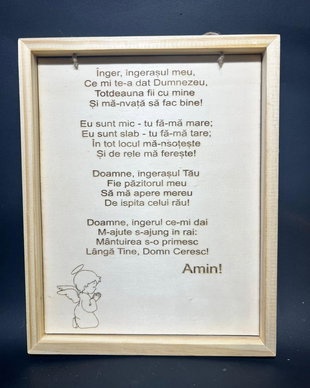 Înger, îngerașul meu,
Ce mi te-a dat Dumnezeu,
Totdeauna fii cu mine
Și mă-nvață să fac bine!
Eu sunt mic - tu fă-mă mare;
Eu sunt slab - tu fă-mă tare;
În tot locul mă-nsoțește
Și de rele mă ferește!
Doamne, îngerașul Tău
Fie păzitorul meu
Să mă apere mereu
De ispita celui rău!
Doamne, îngerul ce-mi dai
M-ajute s-ajung în rai:
Mântuirea s-o primesc
Lângă Tine, Domn Ceresc!
Amin!